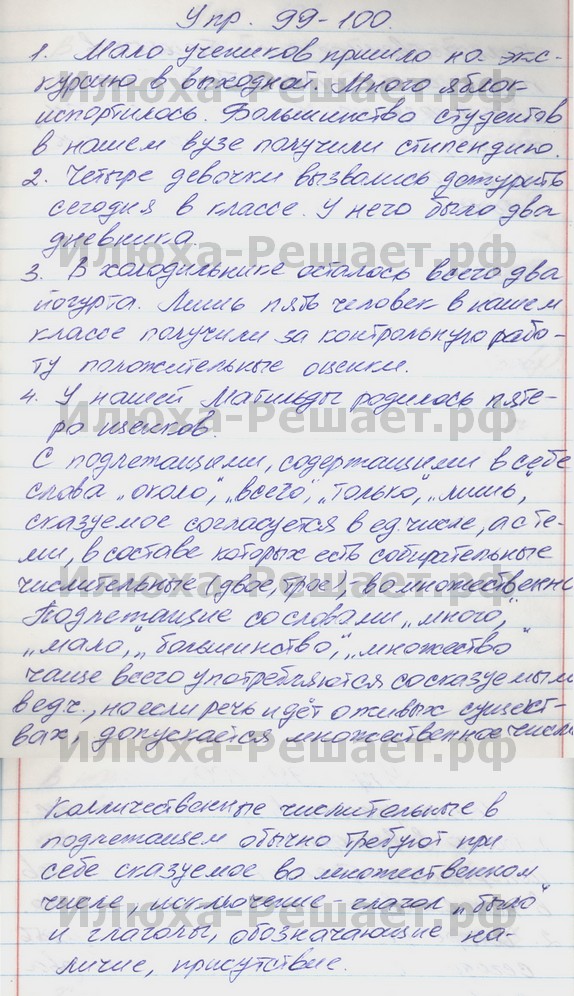 Упр. 99-100.
1. Мало учеников пришло на экс-
курсию в выходной. Много яблок
испортилось. Большинство студентов
в нашем вузе получили стипендию.
2. Четыре девочки вызвались дежурить
сегодня в классе. У него было два
дневника.
3. В холодильнике осталось всего два
йогурта. Лишь пять человек в нашем
классе получили за контрольную рабо-
ту положительные оценки.
4. У нашей Матильды родилось пяте-
ро щенков.
С подлежащими, содержащими в себе
слова „около", „всего", „только", „лишь",
сказуемое согласуется в ед. числе, а с те-
ми, в составе которых есть собирательные
числительные (двое, трое), - во множественн
Подлежащие со словами „много",
„мало", „большинство", „множество"
чаще всего употребляются со сказуемыми
в ед.ч., но если речь идёт о живых сущест-
вах, допускается множественное число
Количественные числительные в
подлежащем обычно требуют при
себе сказуемое во множественном
числе, исключение - глагол „было"
и глаголы, обозначающие на-
личие, присутствие.
Илюха-Решает.рф
Илюха-Решает.рф
Илюха-Решает.рф
Илюха-Решает.рф
Илюха-Решает.рф
Илюха-Решает.рф
Илюха-Решает.рф